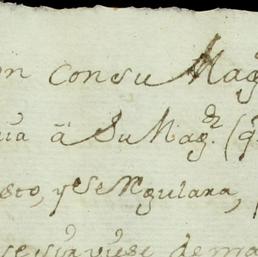 on con su Mag
ua à Su Mag.d (q
sto, y se Regulara,
se sirviese de ma